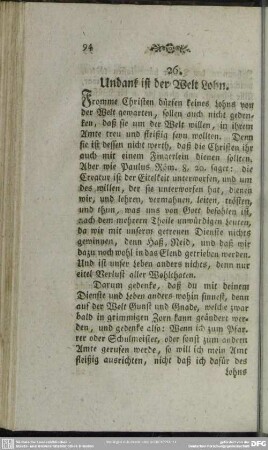 94
26.
Undank ist der Welt Lohn.
Fromme Christen dürfen keines Lohns von
der Welt gewarten, sollen auch nicht geden-
ken, daß sie um der Welt willen, in ihrem
Amte treu und fleißig seyn wollten. Denn
sie ist dessen nicht werth, daß die Christen ihr
auch mit einem Fingerlein dienen sollten.
Aber wie Paulus Röm. 8, 20. saget: die
Creatur ist der Eitelkeit unterworfen, und um
des willen, der sie unterworfen hat, dienen
wir, und lehren, vermahnen, leiten, trösten,
und thun, was uns von Gott befohlen ist,
nach dem mehrern Theile unwürdigen Leuten,
da wir mit unserm getreuen Dienste nichts
gewinnen, denn Haß, Neid, und daß wir
dazu noch wohl in das Elend getrieben werden.
Und ist unser Leben anders nichts, denn nur
eitel Verlust aller Wohlthaten.
Darum gedenke, daß du mit deinem
Dienste und Leben anders wohin sinnest, denn
auf der Welt Gunst und Gnade, welche zwar
bald in grimmigen Zorn kann geändert wer-
den, und gedenke also: Wenn ich zum Pfar-
rer oder Schulmeister, oder sonst zum andern
Amte gerufen werde, so will ich mein Amt
fleißig ausrichten, nicht daß ich dafür des
Lohns